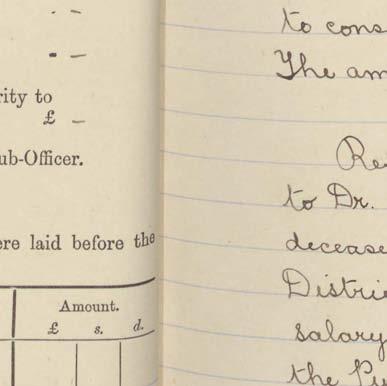 - –
- –
rity to
£ –
ub-Officer.
ere laid before the
Amount.
£ s. d.
to cons
The am
Re
to Dr.
decease
Distri
salary
the Pu